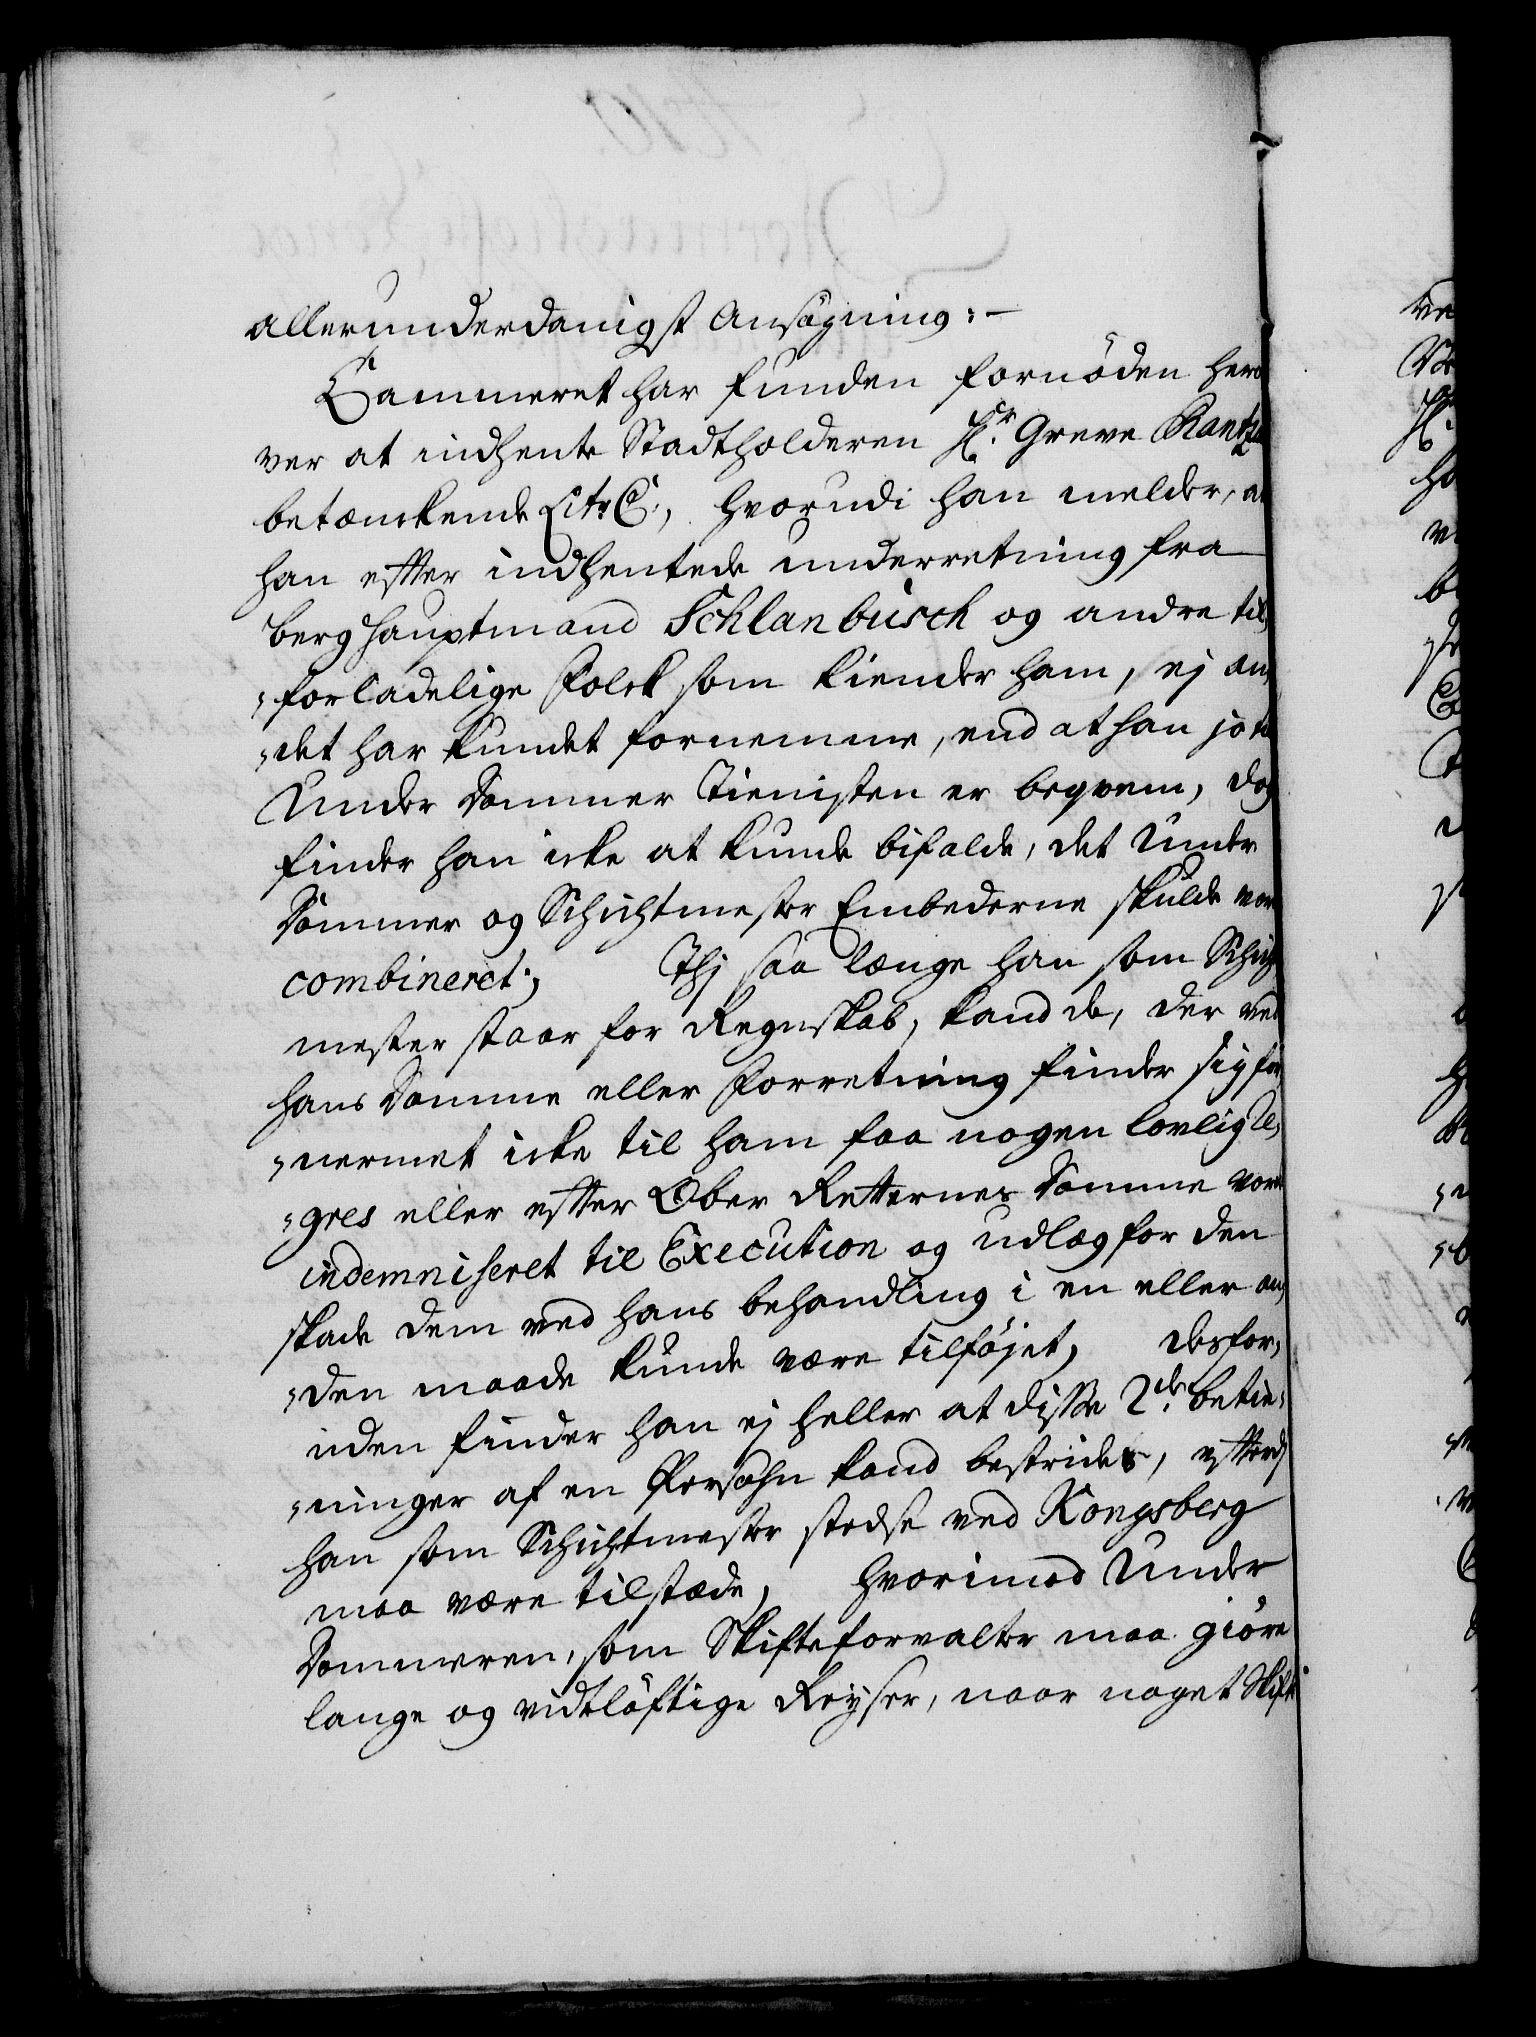 allerunderdanigst Ansøgning: —
Cammeret har funden fornöden her o
ver at indhente Stadtholderen Hr. Greve Rantzau
betænckende Litr. C., hvorudi han melder, at
han efter indhentede underretning fra
berghauptmand Schlanbusch og andre til,
„forladelige Folck som kiender ham, ej an,
„det har kundet fornemme, end at han jo til
Under Dommer Tienisten er beqvem, dog
finder han icke at kunde bifalde, det Under
Dommer og Schichtmester Embederne skulde vær
combineret; Thj saa længe han som Schicht
mester staar for Regnskab, kand de, der ved
hans Domme eller Forretning finder sig for
„nermet icke til ham faa nogen lovlig Re,
„gres eller efter Ober Retternes Domme vor
indemniseret til Execution og udlæg for den
skade dem ved hans behandling i en eller an,
„den maade kunde være tilföjet, desfor,
uden finder han ej heller at disse 2de. betie,
„ninger af en Persohn kand bestrides, efterdj
han som Schichtmester stedse ved Kongsberg
maa være tilstæde, hvorimod Under
Dommeren, som Skifteforvalter maa giöre
lange og vidtlöftige Reyser, naar noget Skifte